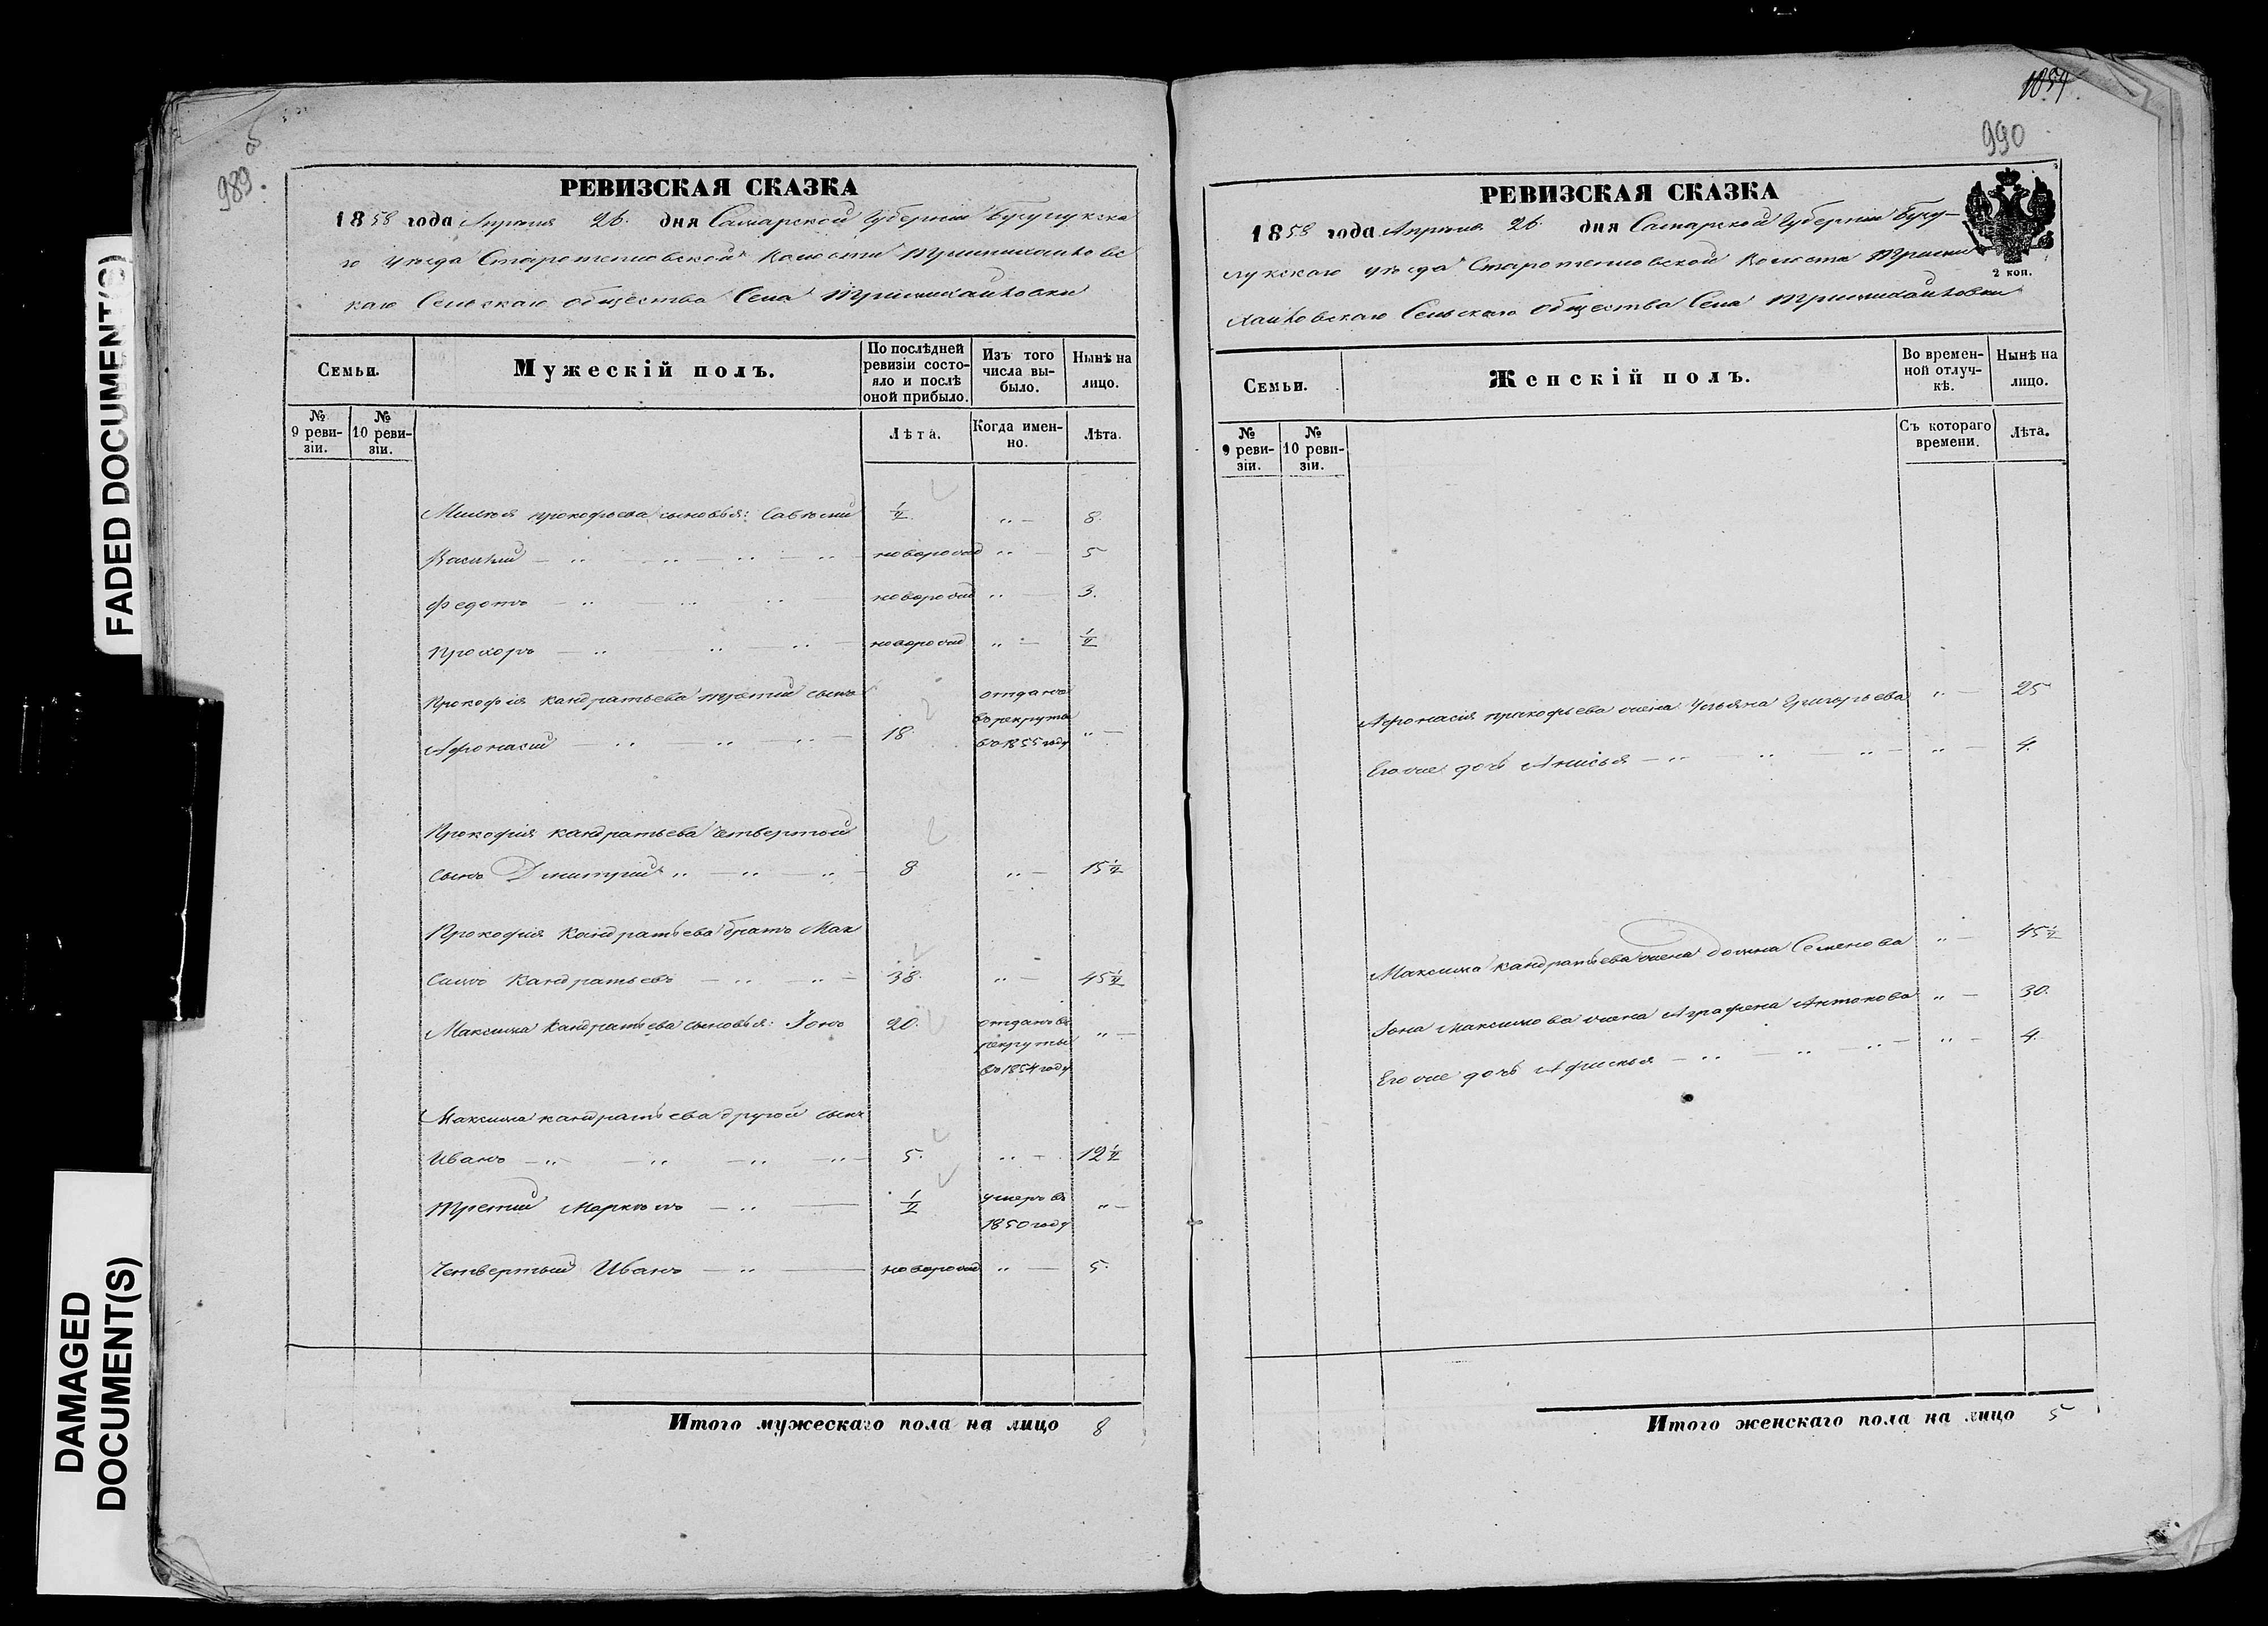 FADED DOCUMENT(S)
DAMAGED
DOCUMENT(S)
989 об
РЕВИЗСКАЯ СКАЗКА
1858 года Апреля 26. дня Самарской Губернии Бугурукска
го уезда Старотепловской Волости
каго Сельскаго общества Села
Семьи.
Мужескій полъ.
По послѣдней ревизіи состояло и послѣ оной прибыло.
Изъ того числа выбыло.
Нынѣ на лицо.
№ 9 ревизіи.
№ 10 ревизіи.
Лѣта.
Когда именно.
Лѣта.
прокофьева сыновья: Савелий 1/2 " — 8.
Василий — " — " — " — " новорожд " — 5
Федотъ — " — " " — новорожд " — 3.
Прохоръ — " — " — " — новорожд " — 1/2
Прокофія Кандратьева третий сынъ
Афонасий — " — " — " — 18. отданъ въ рекруты въ 1855 году " —
Прокофія Кандратьева четвертый
сынъ Дмитрий " — " — " — 8 " — 15 1/2
Прокофія Кандратьева братъ Мак
симъ Кандратьевъ — " — " — 38. " — 45 1/2
Максима Кандратьева сыновья: Іонъ 20. отданъ въ рекруты въ 1854 году " —
Максима кандратьева другой сынъ
Иванъ — " — " — " — " — 5. " — 12 1/2
Третий — " — 1/2 умеръ въ 1850 году " —
Четвертый Иванъ — " — новорожд " — 5.
Итого мужескаго пола на лицо 8
1054
990
РЕВИЗСКАЯ СКАЗКА
2 коп.
1858 года Апреля 26. дня Самарской Губернии Бугу-
рукскаго уезда Старотепловской Волости
Сельскаго общества Села
Семьи.
Женскій полъ.
Во временной отлучкѣ.
Нынѣ на лицо.
№ 9 ревизіи.
№ 10 ревизіи.
Съ котораго времени.
Лѣта.
Афонасія прокофьева жена Ульяна Григорьева " — 25
Его же дочь Анисья — " — " — " — " — 4.
Максима кандратьева жена Домна Семенова " — 45 1/2
Іона Максимова жена Аграфена Антонова " — 30.
Его же дочь — " — " — " — " — 4.
Итого женскаго пола на лицо 5